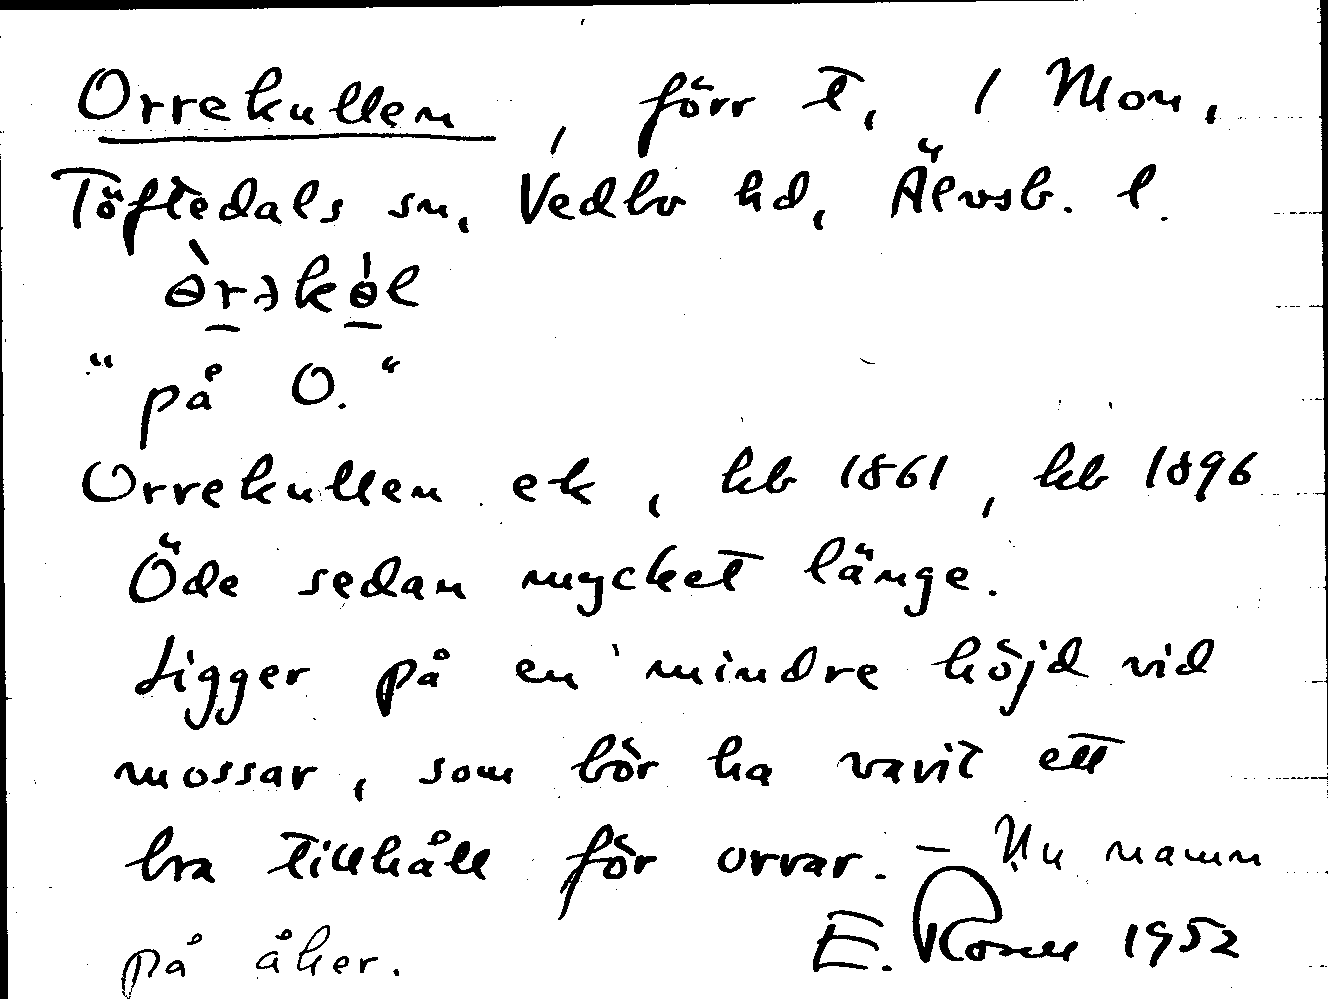 Orrekullen, förr t, / Mon,
Töftedals sn, Vedbo hd, Älvsb. l.
ɵ̀rəkɵ́l
"på O."
Orrekullen ek, hb 1861, hb 1896
Öde sedan mycket länge.
Ligger på en mindre höjd vid
mossar, som bör ha varit ett
bra tillhåll för orrar. – Nu namn
på åker. E. 1952